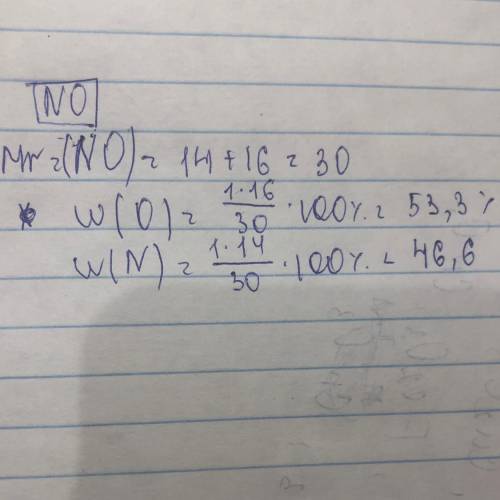 NO
Mr=(NO)= 14+16=30
w(O)= 1·16/30 ·100%= 53,3%
w(N)= 1·14/30 ·100%= 46,6